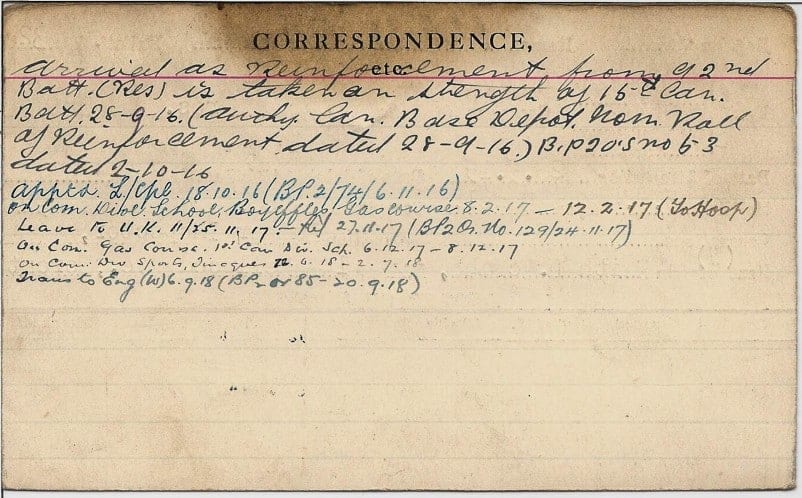 CORRESPONDENCE,
etc.
arrived as Reinforcement from 92nd
Batt. (Res) is taken on strength of 15th Can.
Batt. 28-9-16. (Authy. Can. Base Depot. Nom. Roll
of Reinforcement dated 28-9-16.) B.P 2 O's no 53
dated 2-10-16
Appt'd. L/Cpl. 18.10.16 (BP 2/74/6.11.16)
On Com. Divl School, Gas course 8.2.17 — 12.2.17 (To Hosp)
Leave to U.K. 11/25.11.17 — 27.11.17 (BP2 Os. No. 129/24.11.17)
On Com. Gas Course. 1st Can Div. Sch. 6.12.17 — 8.12.17
On Com. Div Sports, 6.18 — 2.7.18
Trans to Eng (W) 6.9.18 (BP2 or 85 - 20.9.18)